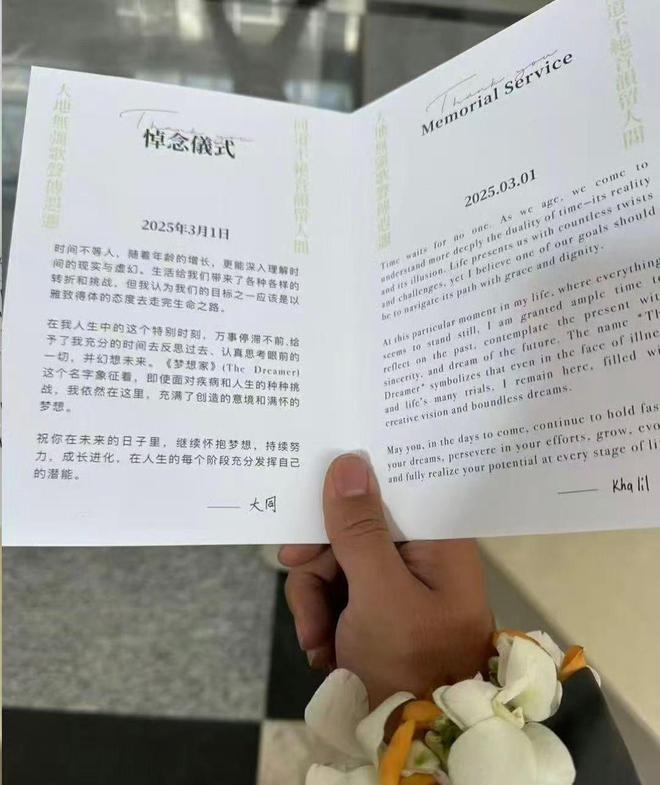 大地無疆歌聲傳遐邇
Thank you
悼念儀式
同道不絕音韻留人間
2025年3月1日
时间不等人，随着年龄的增长，更能深入理解时
间的现实与虚幻。生活给我们带来了各种各样的
转折和挑战，但我认为我们的目标之一应该是以
雅致得体的态度去走完生命之路。
在我人生中的这个特别时刻，万事停滞不前,给
予了我充分的时间去反思过去、认真思考眼前的
一切，并幻想未来。《梦想家》(The Dreamer)
这个名字象征着，即使面对疾病和人生的种种挑
战，我依然在这里，充满了创造的意境和满怀的
梦想。
祝你在未来的日子里，继续怀抱梦想，持续努
力，成长进化，在人生的每个阶段充分发挥自己
的潜能。
—— 大同
大地無疆歌聲傳遐邇
Thank you
Memorial Service
道不絕音韻留人間
2025.03.01
Time waits for no one. As we age, we come to
understand more deeply the duality of time—its reality
and its illusion. Life presents us with countless twists
and challenges, yet I believe one of our goals should
be to navigate its path with grace and dignity.
At this particular moment in my life, where everything
seems to stand still, I am granted ample time to
reflect on the past, contemplate the present with
sincerity, and dream of the future. The name "The
Dreamer" symbolizes that even in the face of illness
and life's many trials, I remain here, filled with
creative vision and boundless dreams.
May you, in the days to come, continue to hold fast
your dreams, persevere in your efforts, grow, evo
and fully realize your potential at every stage of li
—— Khalil